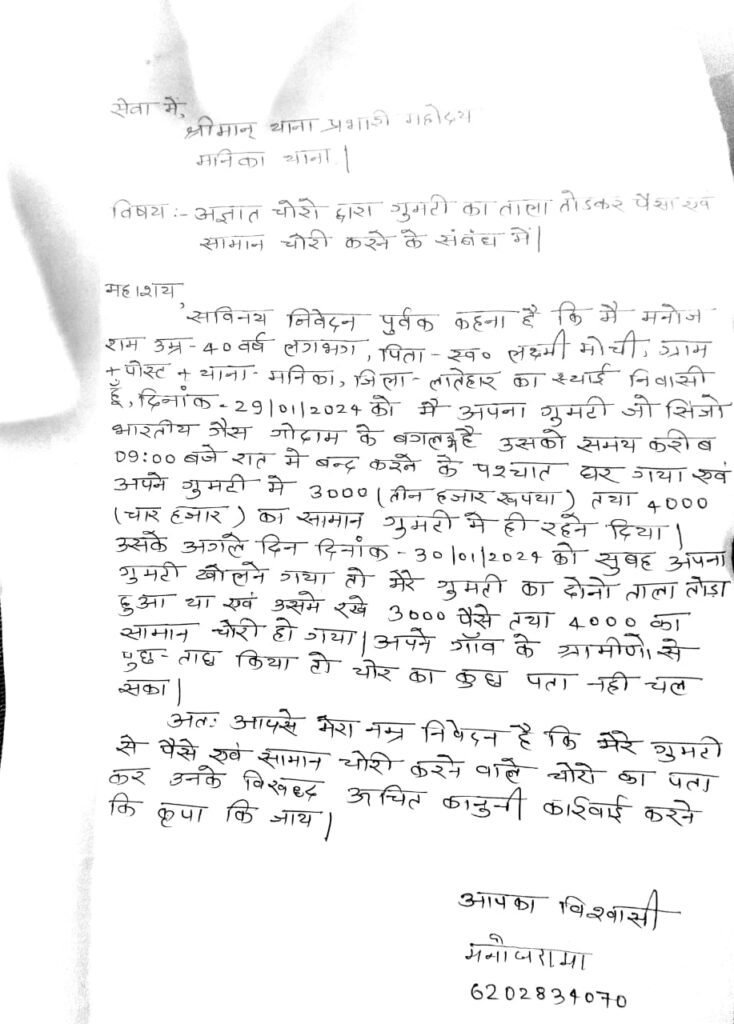 सेवा में,
श्रीमान् थाना प्रभारी महोदय
मनिका थाना।
विषय:- अज्ञात चोरो द्वारा गुमटी का ताला तोडकर पैसा एवं
सामान चोरी करने के संबंध में।
महाशय,
सविनय निवेदन पुर्वक कहना है कि मै मनोज
राम उम्र-40 वर्ष लगभग, पिता- स्व० लक्ष्मी मोची, ग्राम
+पोस्ट + थाना- मनिका, जिला- लातेहार का स्थाई निवासी
हूँ, दिनांक-29/01/2024 को मै अपना गुमटी जो सिंजो
भारतीय गैस गोदाम के बगल में है उसको समय करीब
09:00 बजे रात मे बन्द करने के पश्चात घर गया एवं
अपने गुमटी मे 3000 (तीन हजार रूपया) तथा 4000
(चार हजार) का सामान गुमटी मे ही रहने दिया।
उसके अगले दिन दिनांक-30/01/2024 को सुबह अपना
गुमटी खोलने गया तो मेरे गुमटी का दोनो ताला तोडा
हुआ था एवं उसमे रखे 3000 पैसे तथा 4000 का
सामान चोरी हो गया। अपने गाँव के ग्रामीणो से
पुछ-ताछ किया तो चोर का कुछ पता नही चल
सका।
अतः आपसे मेरा नम्र निवेदन है कि मेरे गुमटी
से पैसे एवं सामान चोरी करने वाले चोरो का पता
कर उनके विरूद्ध उचित कानुनी कार्रवाई करने
कि कृपा कि जाय।
आपका विश्वासी
मनोज राम
6202834070